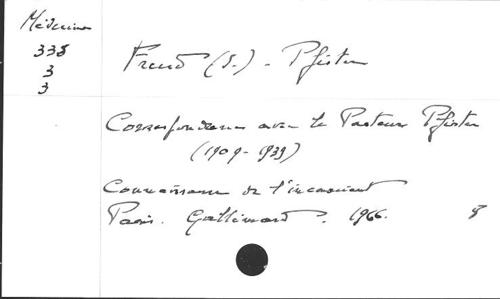 Médecine
335
3
3
Freud (S.) - Pfister
Correspondance avec le Pasteur Pfister
(1909-1939)
Connaissance de l'inconscient
Paris. Gallimard. 1966. 8